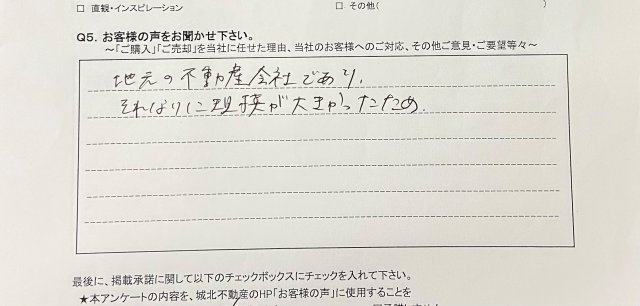 □ 直観・インスピレーション □ その他( )
Q5. お客様の声をお聞かせ下さい。
～「ご購入」「ご売却」を当社に任せた理由、当社のお客様へのご対応、その他ご意見・ご要望等々～
地元の不動産会社であり、
それなりに規模が大きかったため。
最後に、掲載承諾に関して以下のチェックボックスにチェックを入れて下さい。
★本アンケートの内容を、城北不動産のHP「お客様の声」に使用することを